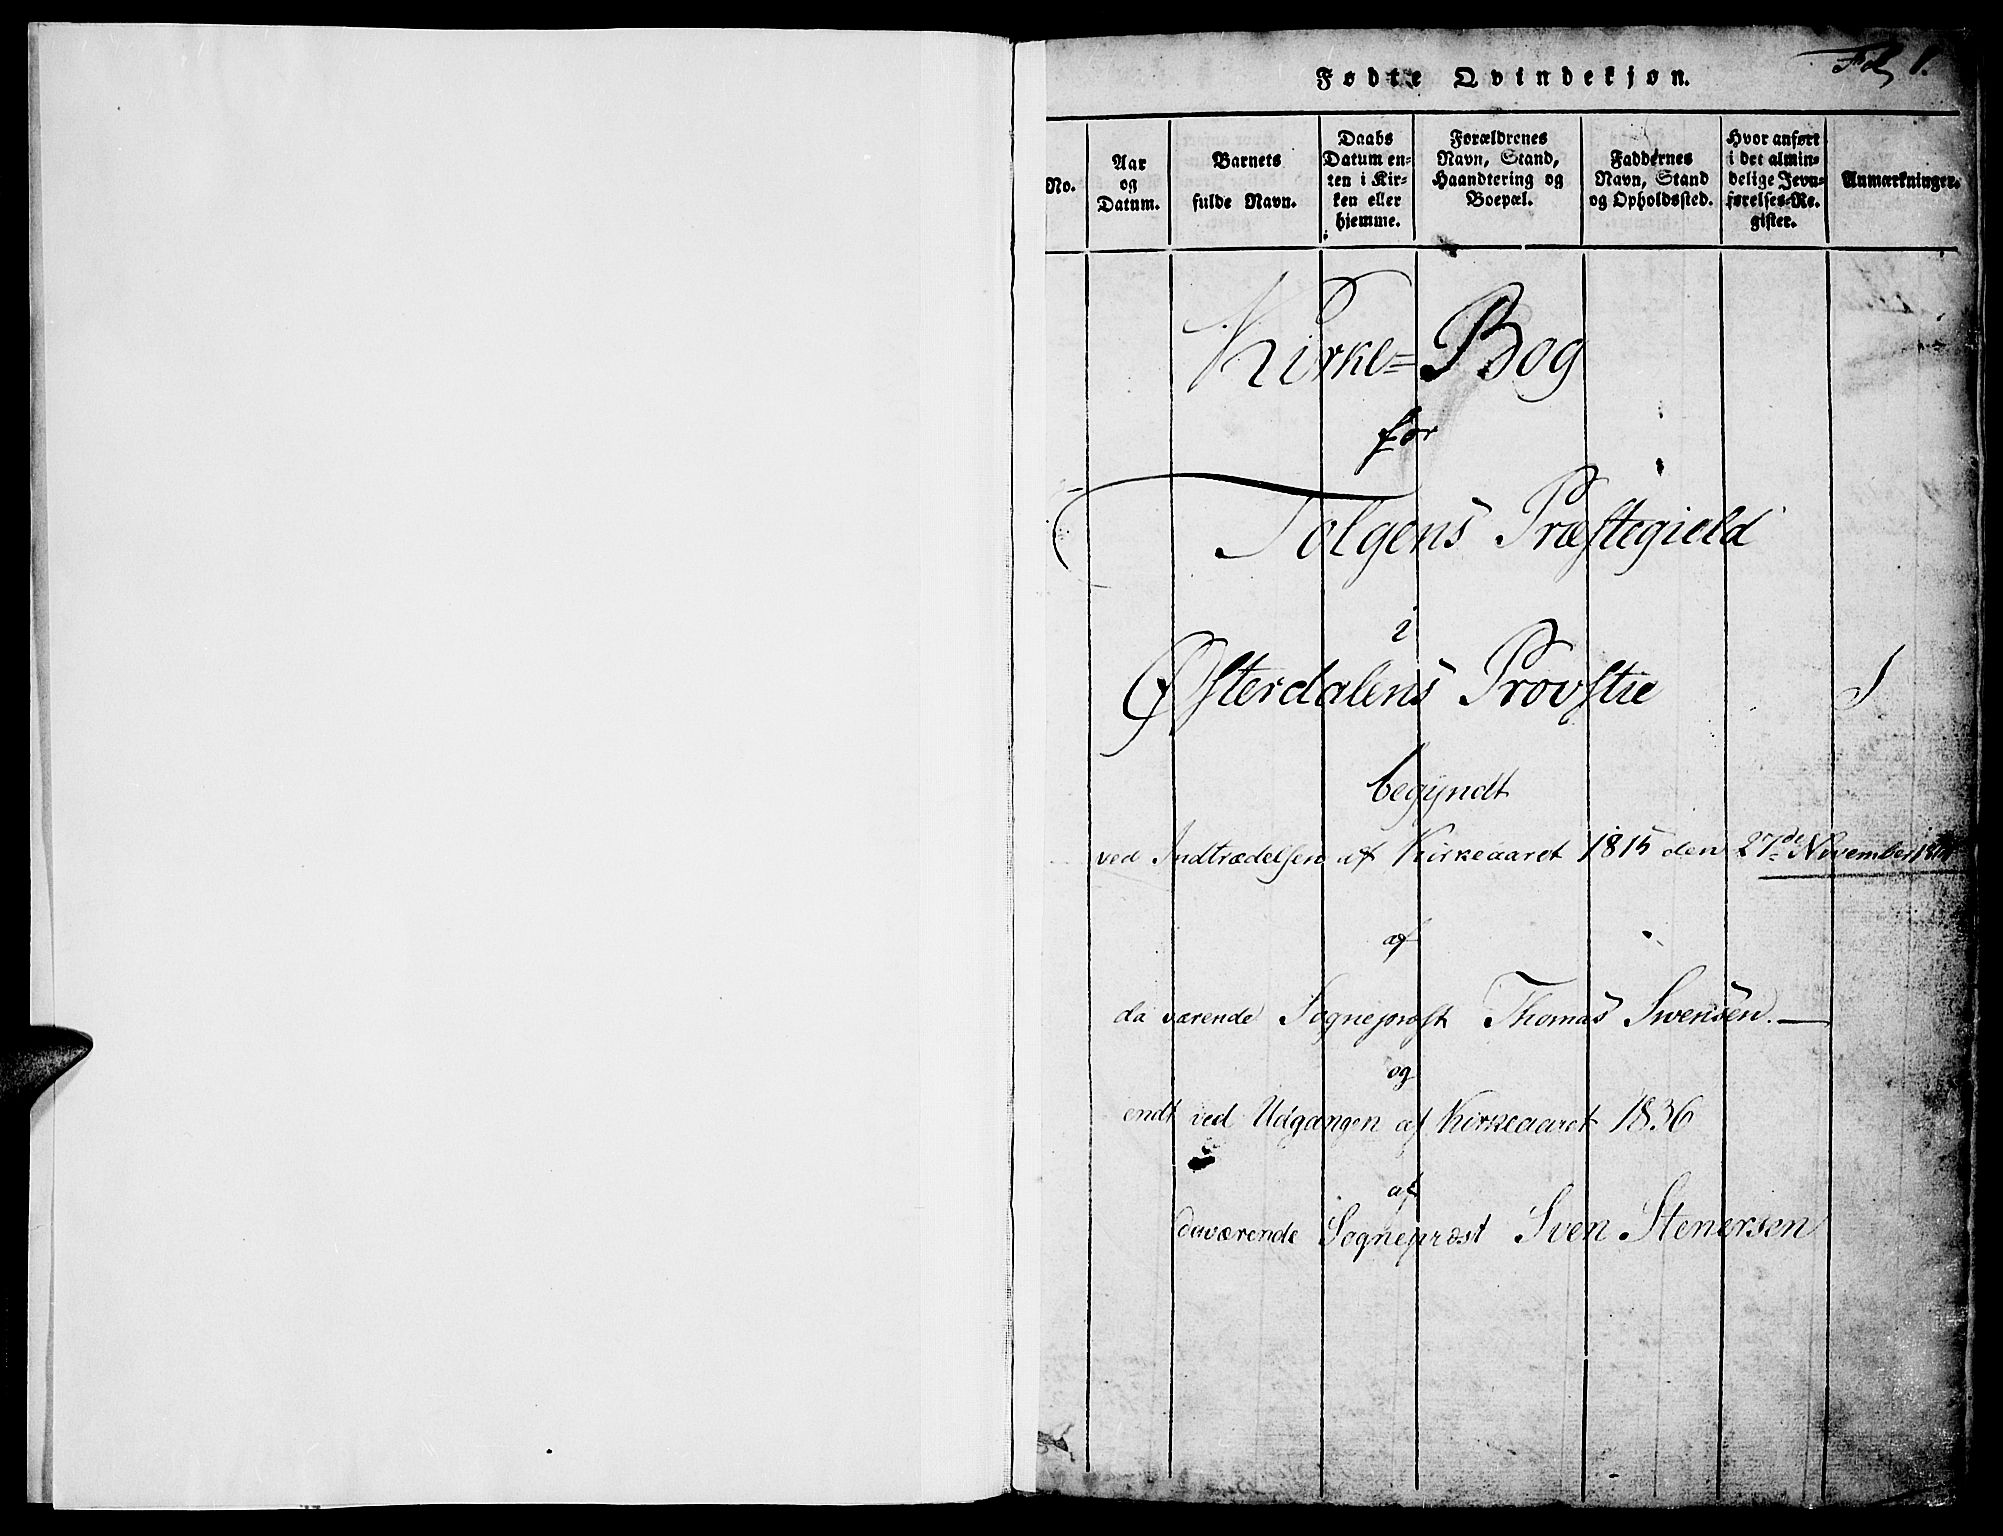 Fol. 1.
Fødte Qvindekjøn.
No.
Aar
og
Datum.
Barnets
fulde Navn.
Daabs
Datum en-
ten i Kir-
ken eller
hjemme.
Forældrenes
Navn, Stand,
Haandtering og
Boepæl.
Faddernes
Navn, Stand
og Opholdssted.
Hvor anført
i det almin-
delige Jevn-
førelses-Re-
gister.
Anmærkninger.
Kirke=Bog
for
Tolgens Præstegield
i
Østerdalens Provstie
begyndt
ved Indtrædelsen af Kirkeaaret 1815 den 27de November 1814
af
da værende Sognepræst Thomas Swensen.
og
endt ved Udgangen af Kirkeaaret 1836
af
daværende Sognepræst Sven Stenersen